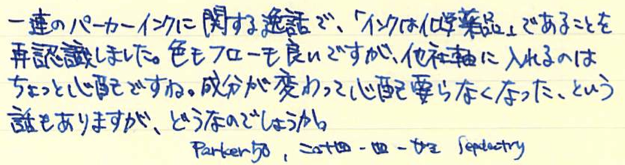 一連のパーカーインクに関する逸話で、「インクは化学薬品」であることを
再認識しました。色もフローも良いですが、他社軸に入れるのは
ちょっと心配ですね。成分が変わって心配要らなくなった、という
話もありますが、どうなのでしょうか。
Parker 50 , 二〇十四 - 四 -